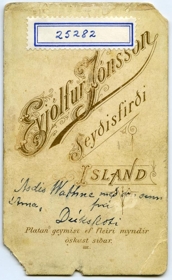 25282
Eyjólfur Jónsson
Seyðisfirði
ISLAND
Ásdís Wathne með
sína, frú
Platan geymist ef fleiri myndir
óskast síðar.